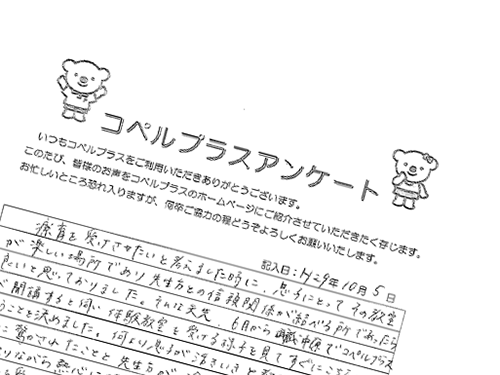 コペルプラスアンケート
いつもコペルプラスをご利用いただきありがとうございます。
このたび、皆様のお声をコペルプラスのホームページにご紹介させていただきたく存じます。
お忙しいところ恐れ入りますが、何卒ご協力の程どうぞよろしくお願いいたします。
記入日：H29年10月5日
療育を受けさせたいと考えました時に、息子にとってその教室
が楽しい場所であり先生方との信頼関係が結べる所であったら
良いと思っておりました。そんな矢先、6月から 中保でコペルプラス
が開講すると伺い体験教室を受ける様子を見てすぐにこちら
うことを決めました。何より息子が活きいきと
に驚かされたことと先生方が
りながら熱心に